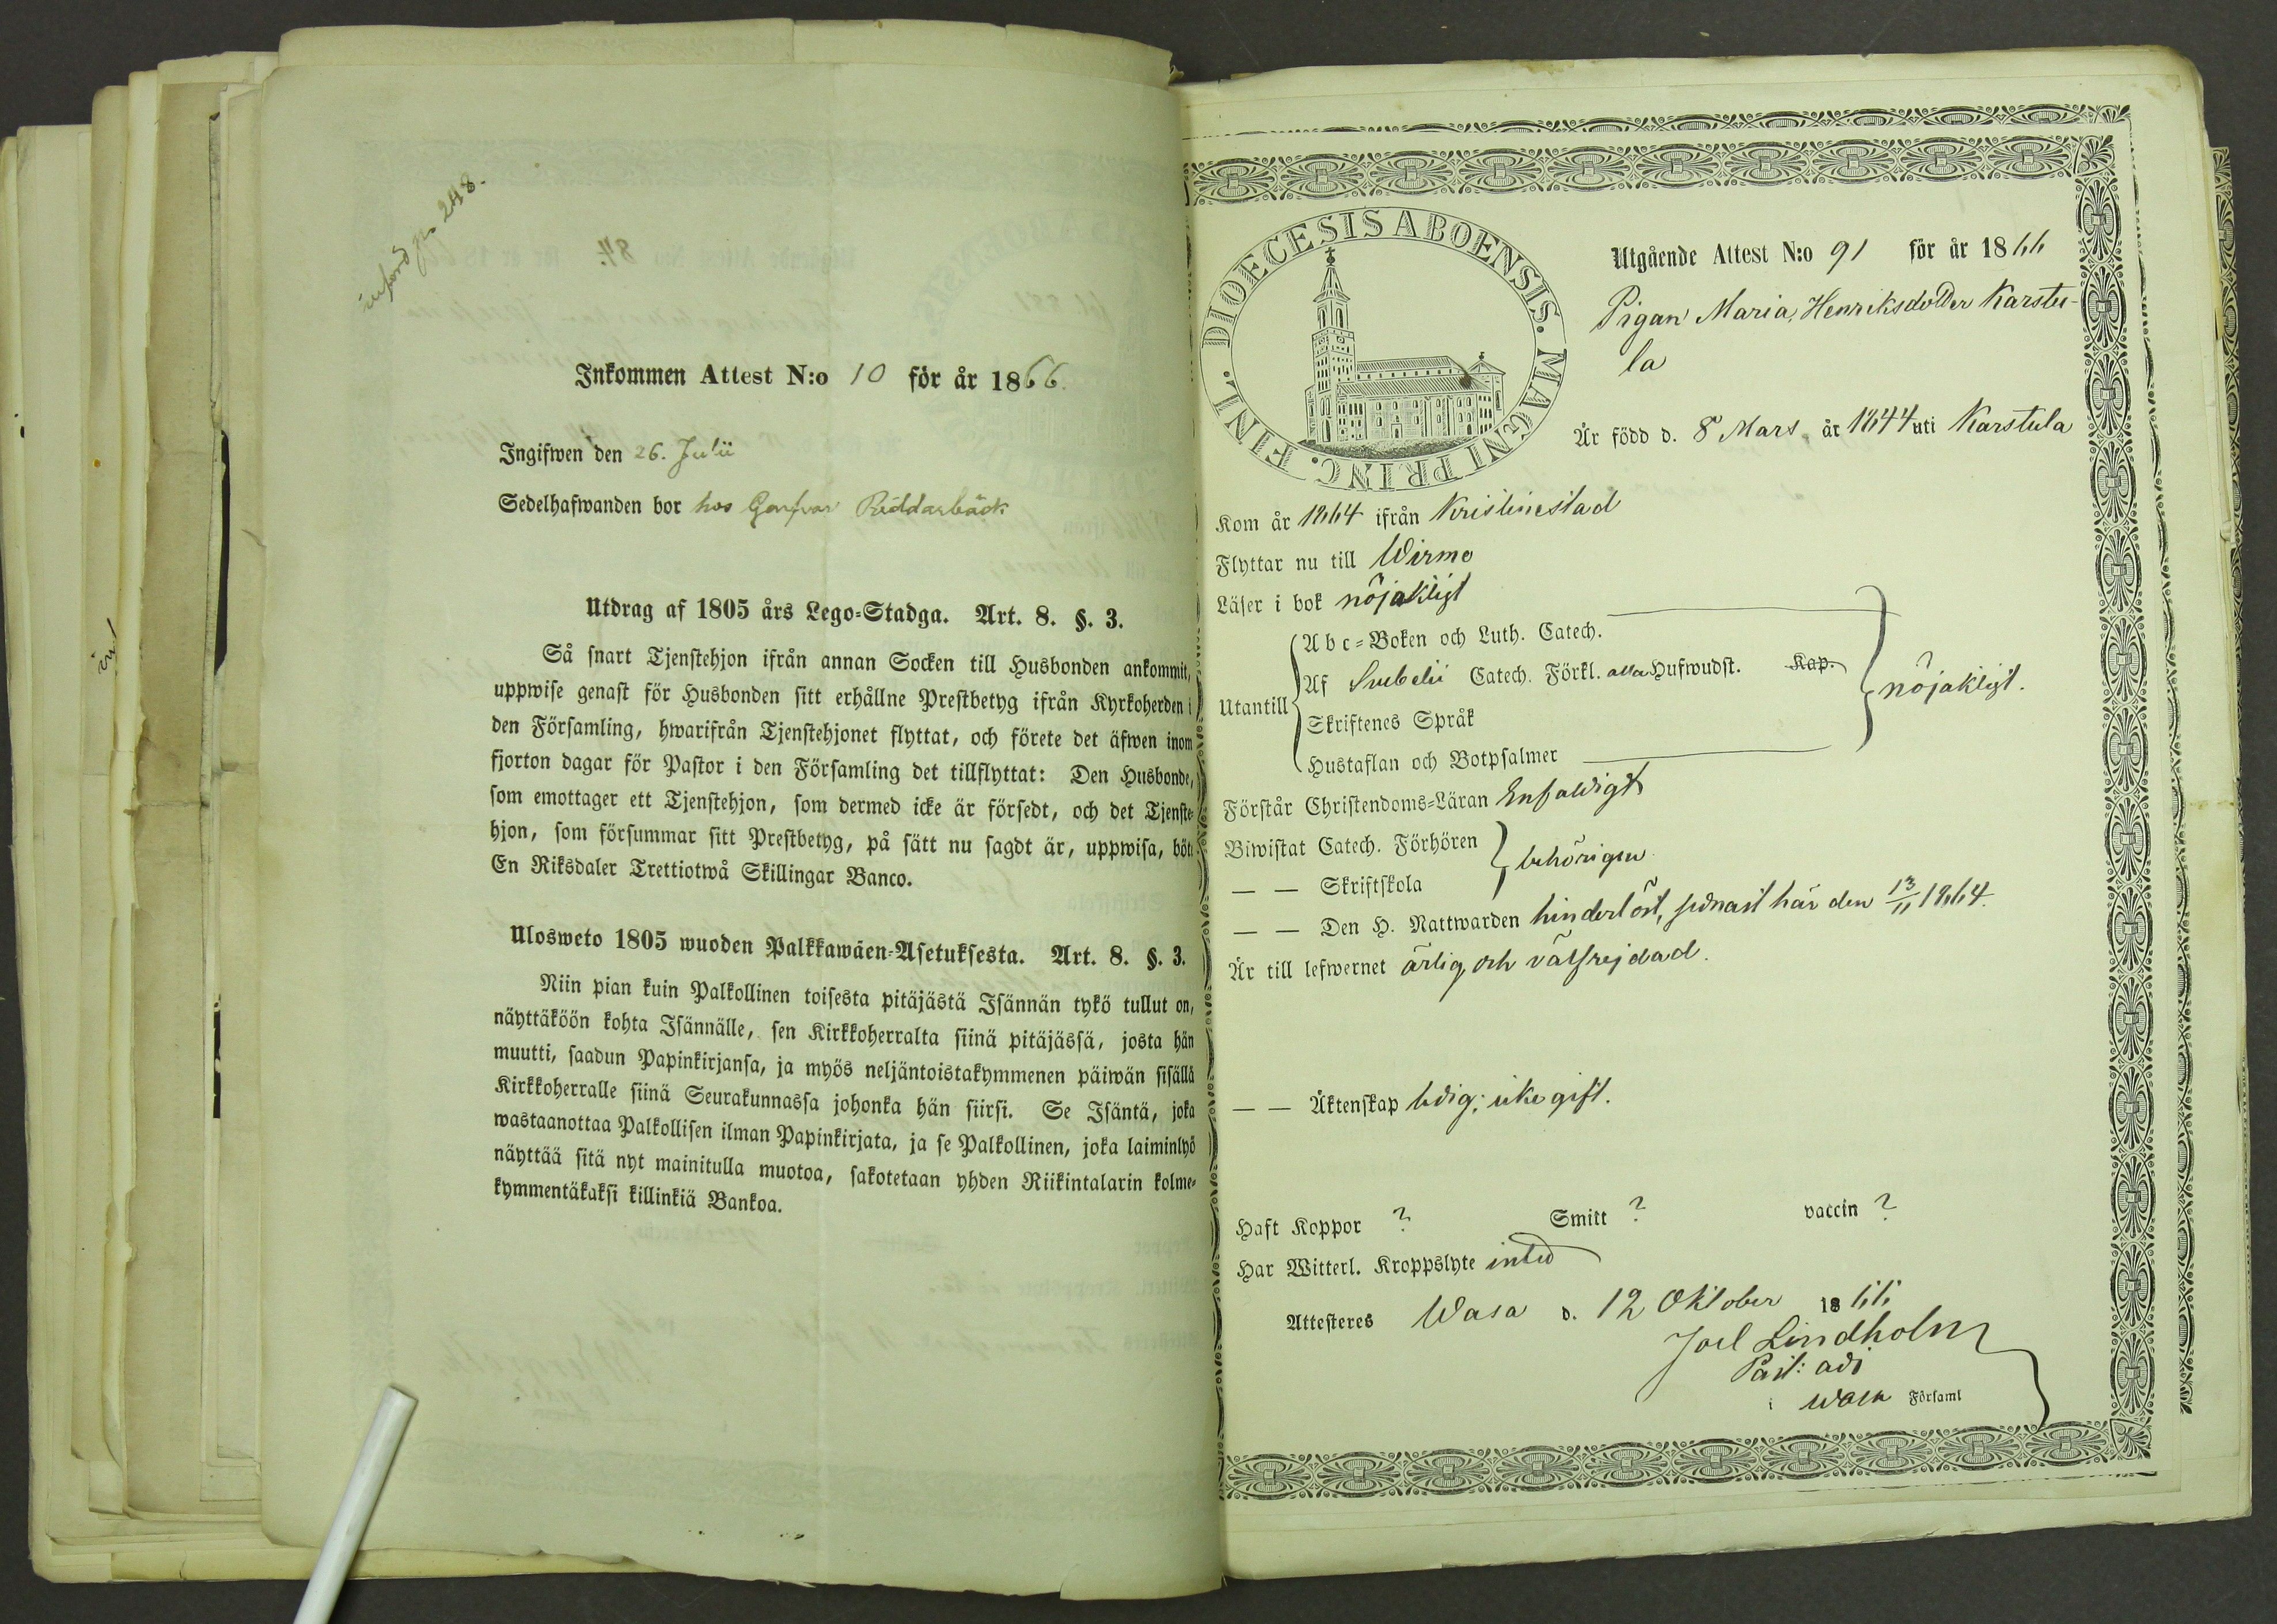 införd p. 248.
Inkommen Attest N:o 10 för år 1866.
Ingifwen den 26. Julii
Sedelhafwanden bor hos Garfvar Riddarbäck
Utdrag af 1805 års Lego=Stadga. Art. 8. §. 3.
Så snart Tjenstehjon ifrån annan Socken till Husbonden ankommit,
uppwise genast för Husbonden sitt erhållne Prestbetyg ifrån Kyrkoherden i
den Församling, hwarifrån Tjenstehjonet flyttat, och förete det äfwen inom
fjorton dagar för Pastor i den Församling det tillflyttat: Den Husbonde,
som emottager ett Tjenstehjon, som dermed icke är försedt, och det Tjenste=
hjon, som försummar sitt Prestbetyg, på sätt nu sagdt är, uppwisa, böte
En Riksdaler Trettiotwå Skillingar Banco.
Ulosweto 1805 wuoden Palkkawäen=Asetuksesta. Art. 8. §. 3.
Niin pian kuin Palkollinen toisesta pitäjästä Isännän tykö tullut on,
näyttäköön kohta Isännälle, sen Kirkkoherralta siinä pitäjässä, josta hän
muutti, saadun Papinkirjansa, ja myös neljäntoistakymmenen päiwän sisällä
Kirkkoherralle siinä Seurakunnassa johonka hän siirsi. Se Isäntä, joka
wastaanottaa Palkollisen ilman Papinkirjata, ja se Palkollinen, joka laiminlyö
näyttää sitä nyt mainitulla muotoa, sakotetaan yhden Riikintalarin kolme=
kymmentäkaksi killinkiä Bankoa.
DIOECESIS ABOENSIS. MAGNI PRINC. FINL.
Utgående Attest N:o 91 för år 1866
Pigan Maria Henriksdotter Karstu-
la
Är född d. 8 Mars. år 1844 uti Karstula
Kom år 1864 ifrån Kristinestad
Flyttar nu till Wirmo
Läser i bok nöjaktigt
Utantill
Abc=Boken och Luth. Catech.
Af Svebelii Catech. Förkl. alla Hufwudst. Kap.
Skriftenes Språk
Hustaflan och Botpsalmer
nöjaktigt.
Förstår Christendoms=Läran Enfaldigt
Biwistat Catech. Förhören
— — Skriftskola
behörigen
— — Den H. Nattwarden hinderlöst, sednast här den 13/11 1864.
Är till lefwernet ärlig och välfrejdad.
— — Äktenskap ledig; icke gift.
Haft Koppor ? Smitt ? vaccin ?
Har Witterl. Kroppslyte intet
Attesteres Wasa d. 12 Oktober 1866
Joel Lindholm
Past: adj
i Wasa Församl